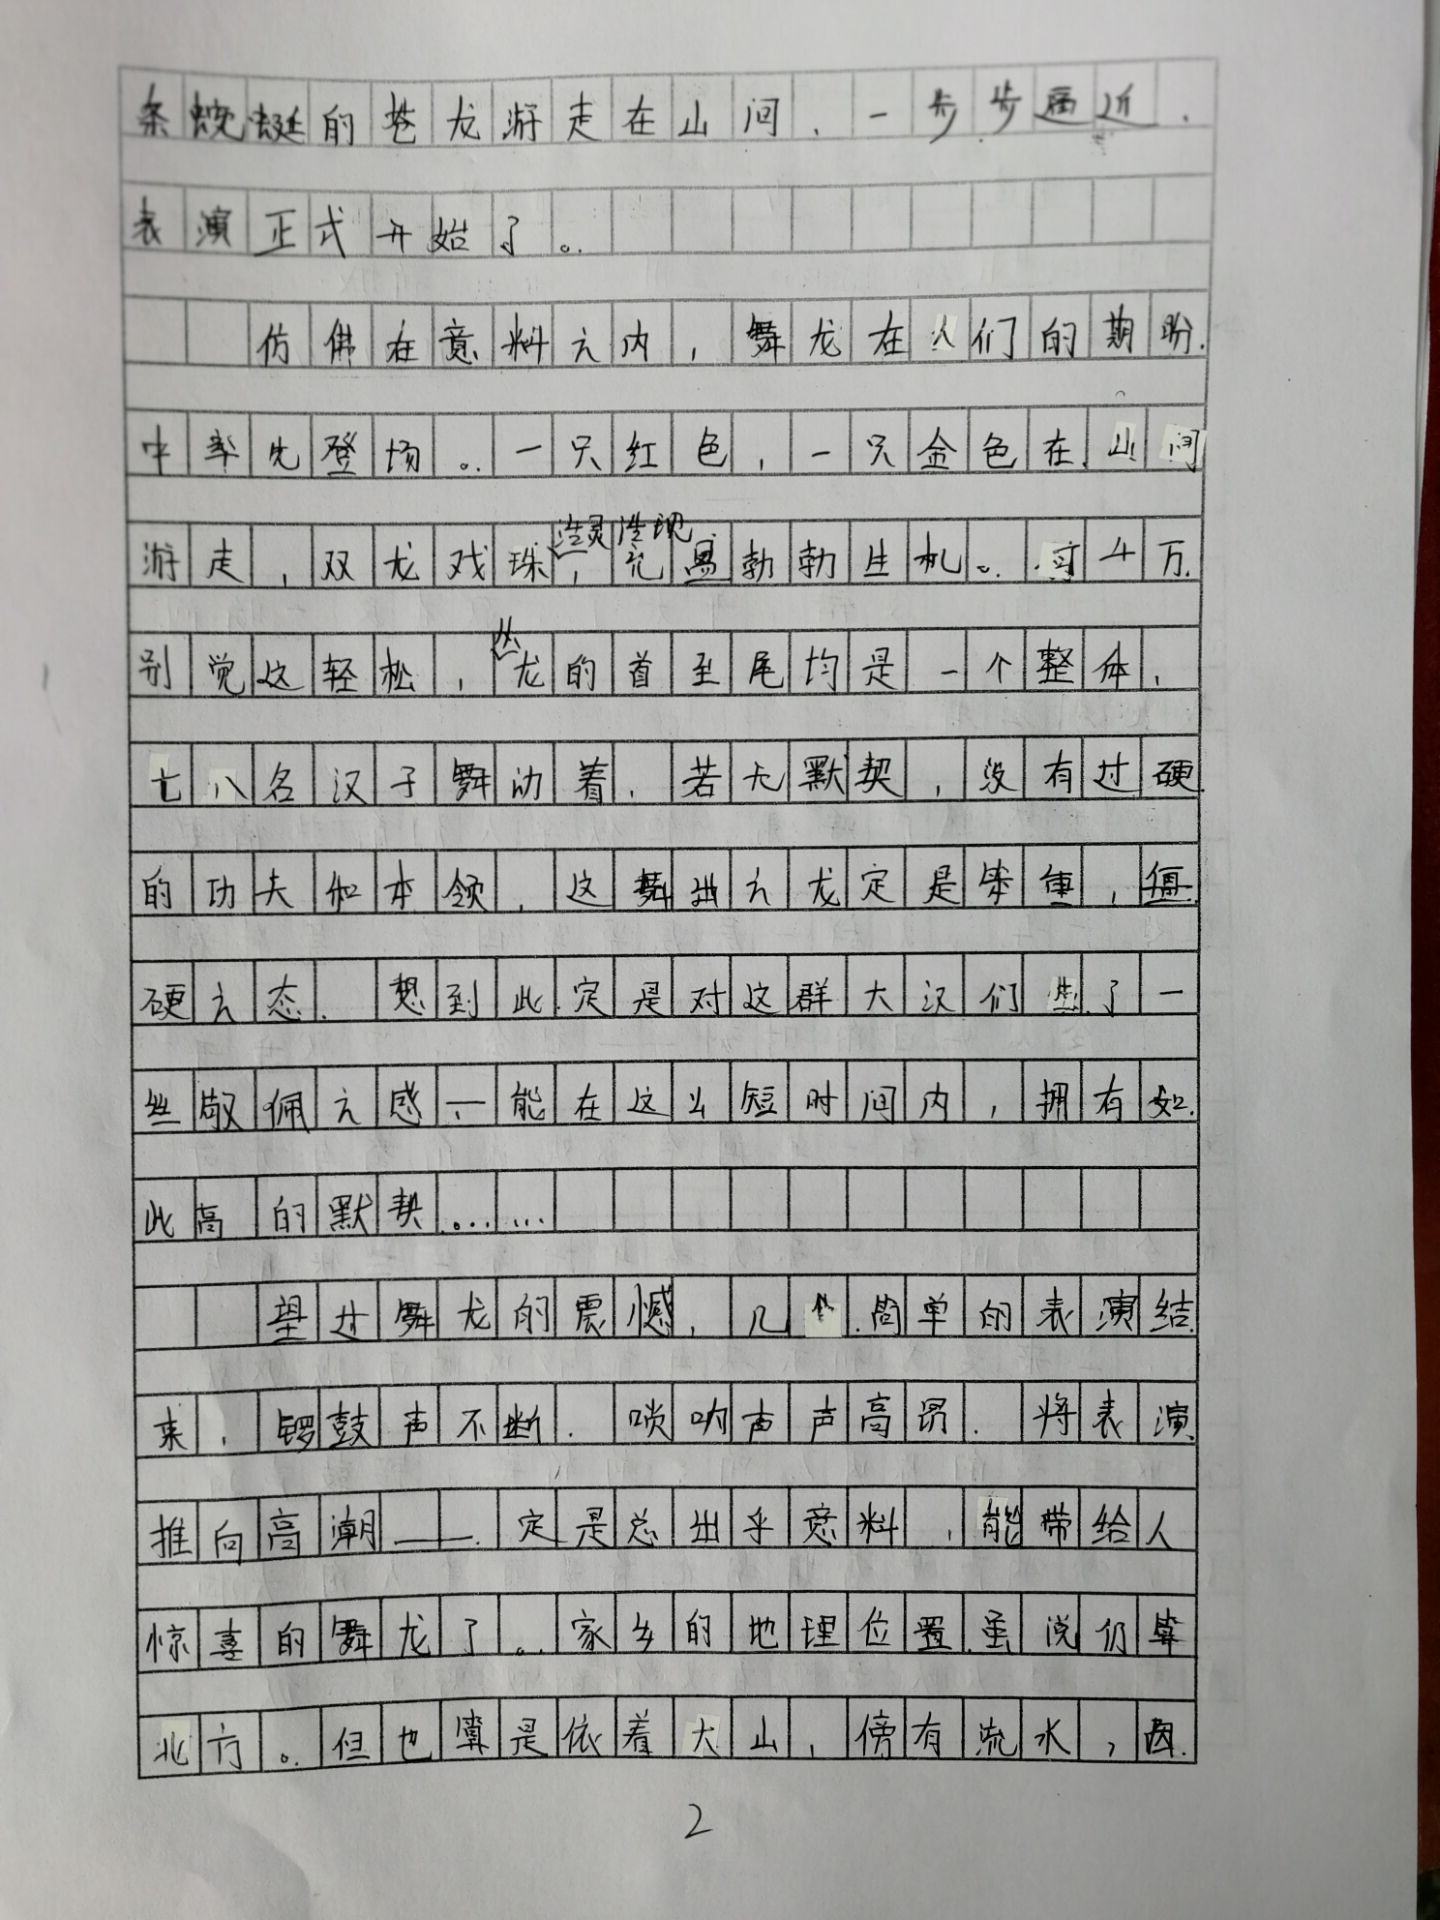 条蜿蜒的苍龙游走在山间，一步步逼近，
表演正式开始了。
仿佛在意料之内，舞龙在人们的期盼
中率先登场。一只红色，一只金色在山间
活灵活现
游走，双龙戏珠，充勃勃生机。可千万
别觉这轻松，龙的首至尾均是一个整体，
七八名汉子舞动着，若无默契，没有过硬
的功夫和本领，这舞出之龙定是笨重，僵
硬之态。想到此定是对这群大汉们生了一
丝敬佩之感—能在这么短时间内，拥有如
此高的默契……
望过舞龙的震憾，几个简单的表演结
束，锣鼓声不断，唢呐声声高昂，将表演
推向高潮——定是总出乎意料，能带给人
惊喜的舞龙了。家乡的地理位置虽说仍算
北方。但也算是依着大山，傍有流水，因
2